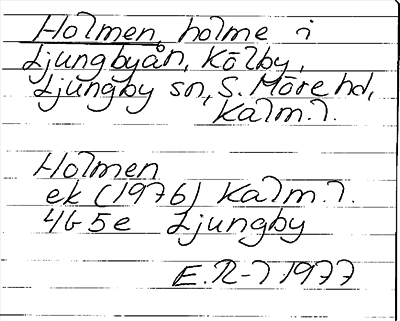 Holmen, holme i
Ljungbyån, Kölby,
Ljungby sn, S. Möre hd,
Kalm. l.
Holmen
ek (1976) Kalm. l.
4G 5e Ljungby
E.R-l 1977